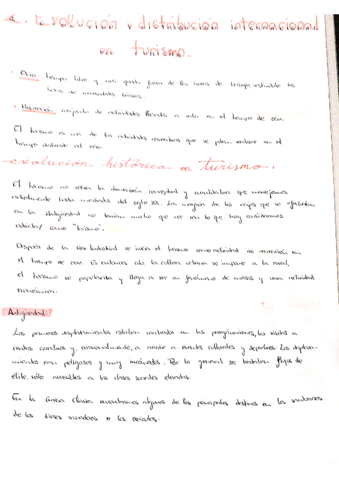 2. Evolución y distribución internacional
del turismo.
· Ocio: tiempo libre y uso queda fuera de las horas de trabajo incluidas las
horas de necesidades básicas.
· Recreación: conjunto de actividades llevadas a cabo en el tiempo de ocio.
El turismo es una de las actividades económicas que se pueden realizar en el
tiempo destinado al ocio.
evolución histórica del turismo:
El turismo no la dimensión conceptual y cuantitativa que manejamos
actualmente hasta mediados del siglo XX. La mayoría de los viajes que se efectuaban
en la Antigüedad no tenían mucho que ver con lo que hoy consideramos
como "turismo".
Después de la Rev. Industrial se inicia el turismo como actividad de recreación en
el tiempo de ocio. Es entonces cdo la cultura urbana se impone a la rural,
el turismo se populariza y llega a ser un fenómeno de masas y una actividad
económica.
Antigüedad:
Los primeros desplazamientos estaban centrados en las peregrinaciones, las visitas a
centros curativos y, ocasionalmente, a acudir a eventos culturales y deportivos. Los desplaza-
mientos eran peligrosos y muy Por lo general se trataban flujos de
élite, sólo accesibles a las clases sociales elevadas.
En la Grecia Clásica, encontramos algunos de los principales destinos en los santuarios
de los dioses sanadores o los oráculos.